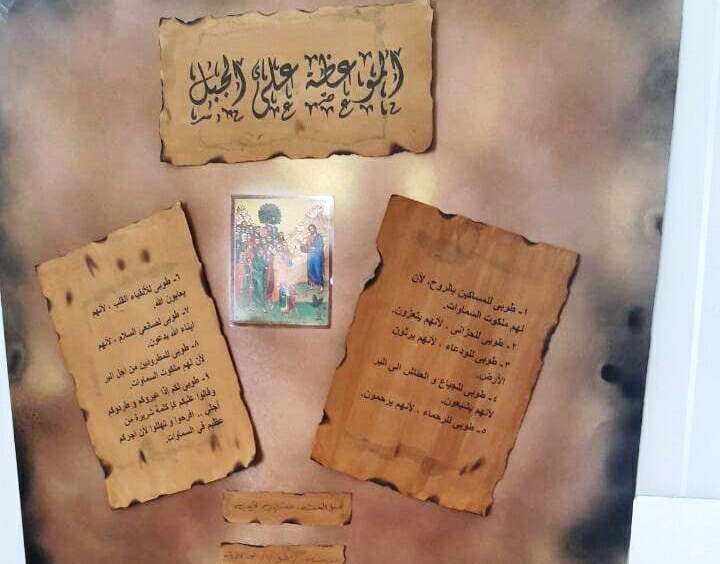 الموعظة على الجبل
١- طوبى للمساكين بالروح، لأن
لهم ملكوت السماوات.
٢- طوبى للحزانى، لأنهم يتعزون.
٣- طوبى للودعاء، لأنهم يرثون
الأرض.
٤- طوبى للجياع و العطاش الى البر
لأنهم يشبعون.
٥- طوبى للرحماء، لأنهم يرحمون.
٦- طوبى للأنقياء القلب، لأنهم
يعاينون الله.
٧- طوبى لصانعي السلام، لأنهم
ابناء الله يدعون.
٨- طوبى للمطرودين من اجل البر
لأن لهم ملكوت السماوات.
٩- طوبى لكم إذا عيروكم و طردوكم
وقالوا عليكم كل كلمة شريرة من
أجلي .. افرحوا و تهللوا لأن اجركم
عظيم في السماوات.